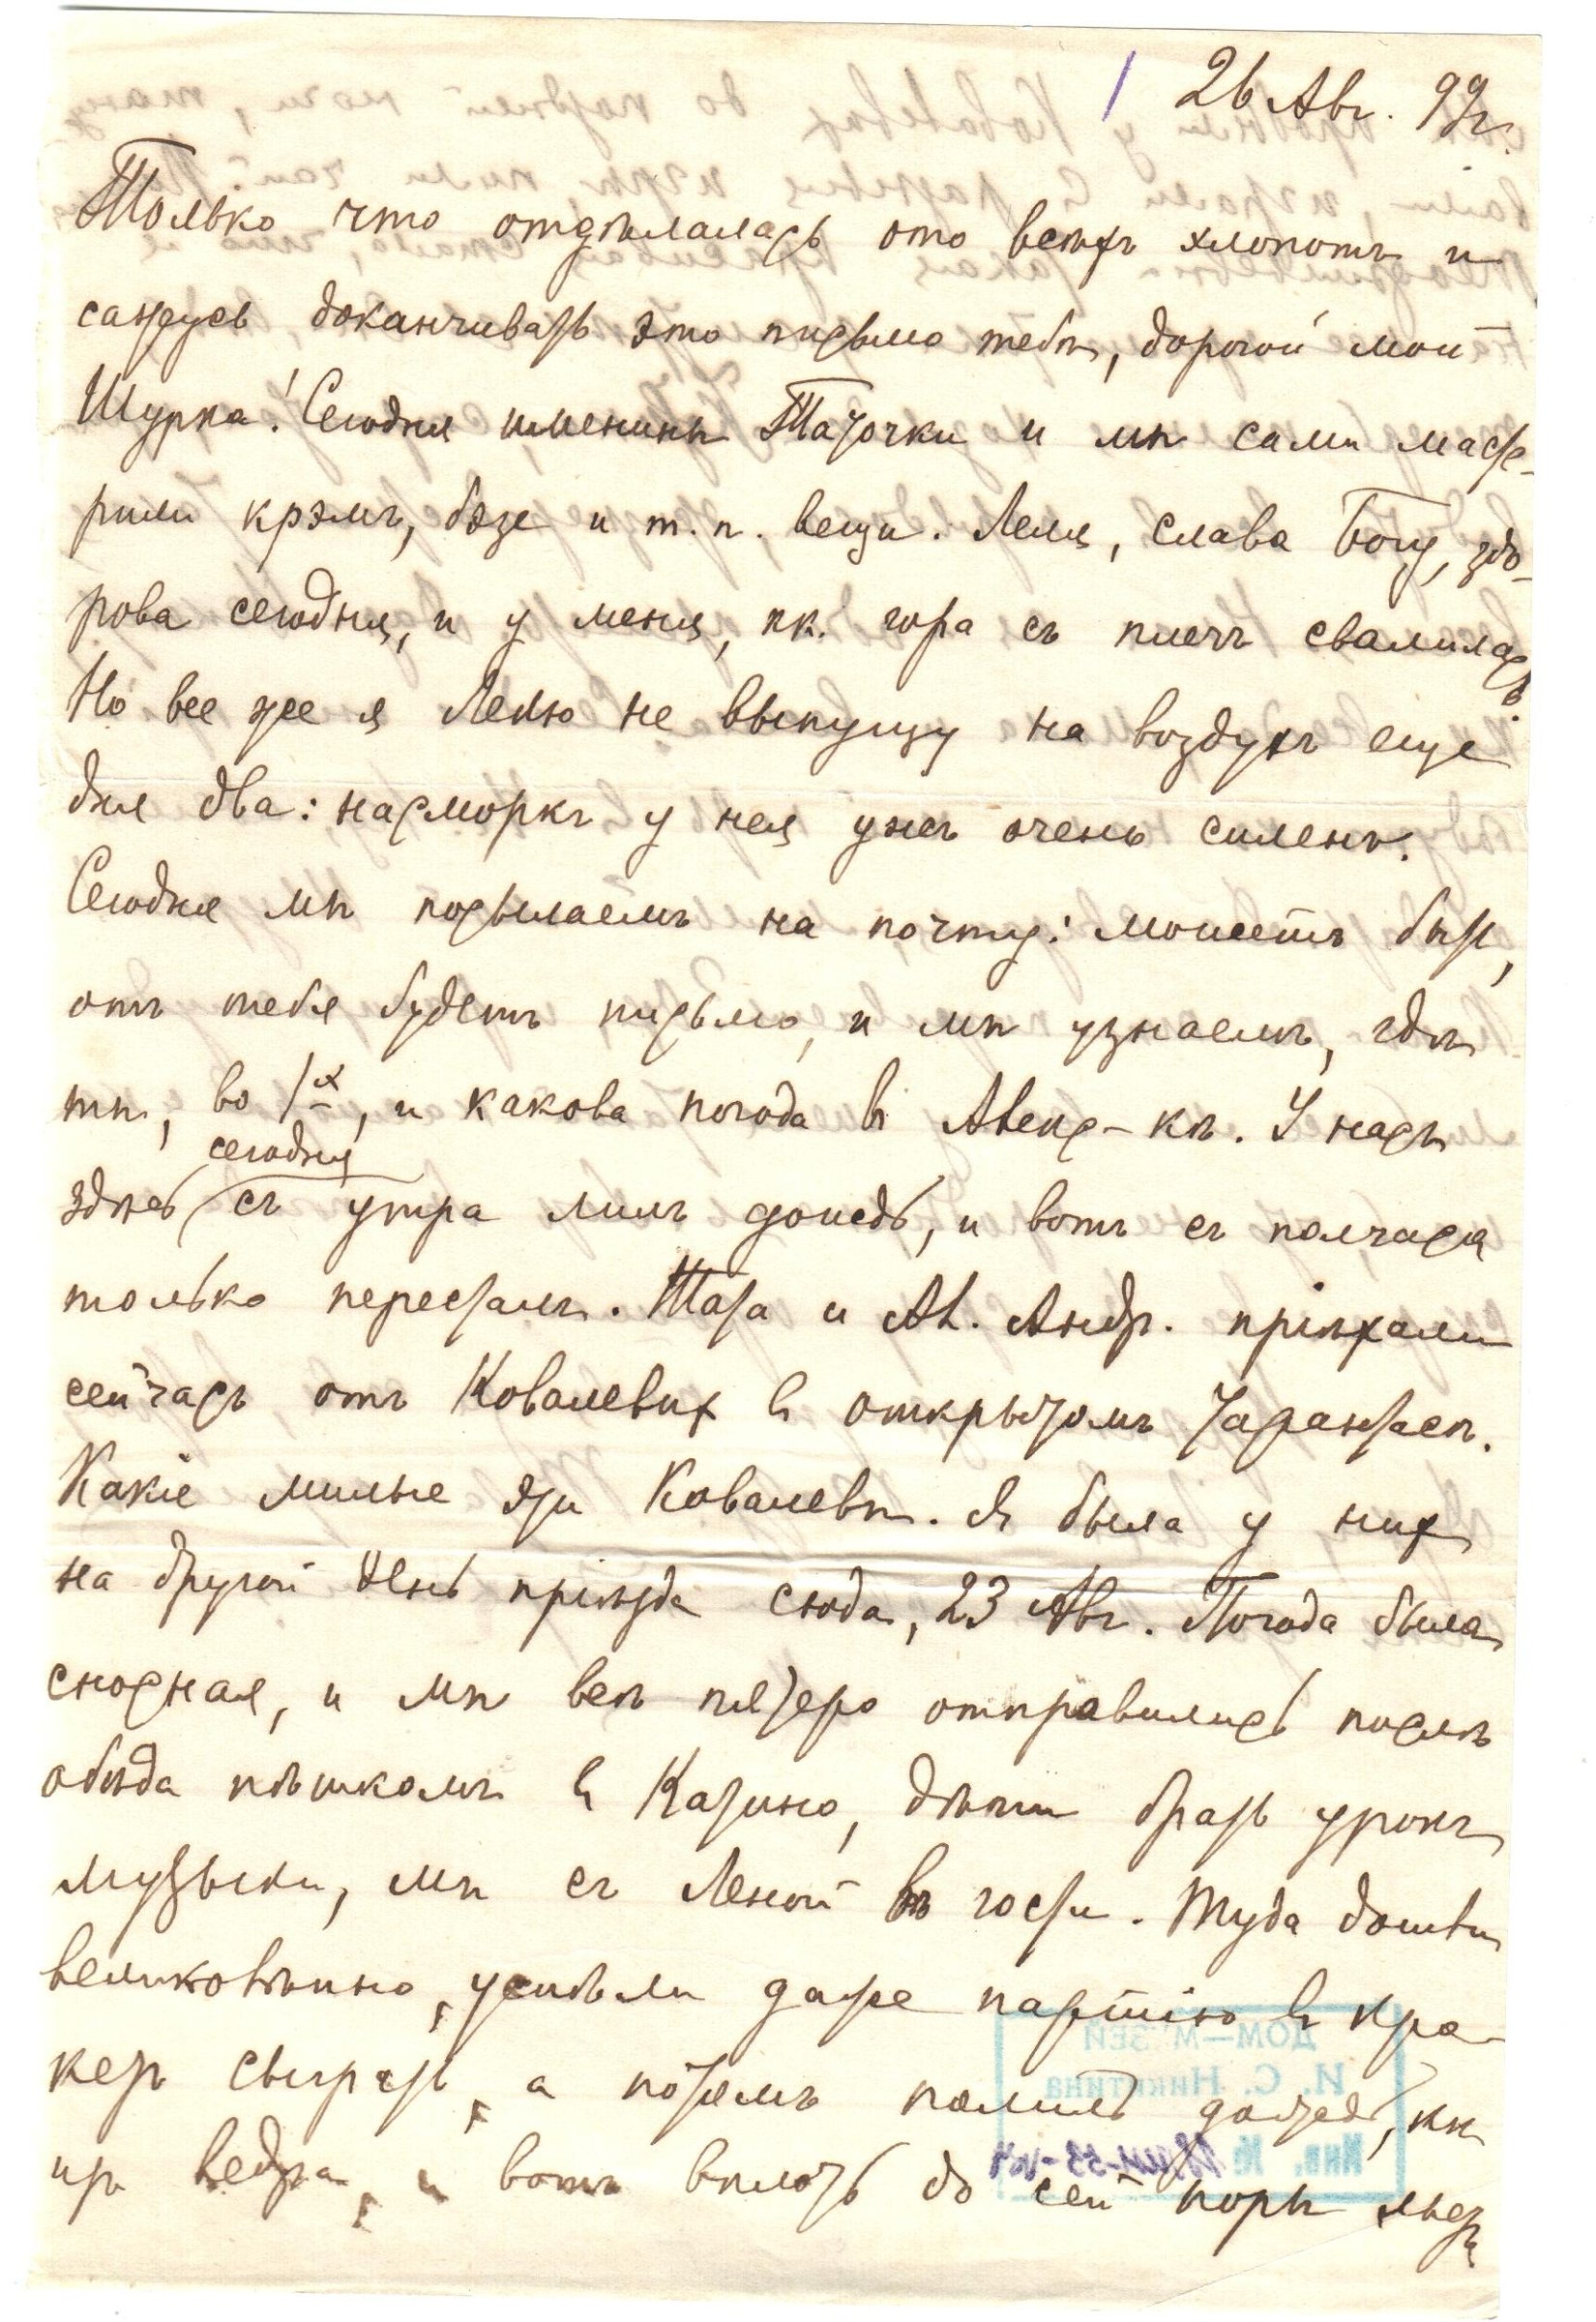 26 Авг. 99 г.
Только что отдѣлалась ото всѣхъ хлопотъ и
сажусь доканчивать это письмо тебѣ, дорогой мой
Шурка! Сегодня именины Таточки и мы сами масте-
рили крэмъ, бэзе и т. п. вещи. Леля, слава Богу, здо-
рова сегодня, и у меня, кк. гора съ плечъ свалилась.
Но все же я Лелю не выпущу на воздухъ еще
дня два: насморкъ у нея ужъ очень силенъ.
Сегодня мы посылаемъ на почту: можетъ быть,
отъ тебя будетъ письмо, и мы узнаемъ, гдѣ
ты, во 1х, и какова погода въ Алекс-кѣ. У насъ
сегодня
здѣсь съ утра лилъ дождь, и вотъ съ полчаса
только пересталъ. Тата и Ал. Андр. пріѣхали
сейчасъ отъ Ковалевых въ открытомъ тарантасѣ.
Какіе милые эти Ковалевы. Я была у них
на другой день пріѣзда сюда, 23 Авг. Погода была
сносная, и мы всѣ пятеро отправились послѣ
обѣда пѣшкомъ въ Казино, дѣти брать урокъ
музыки, мы съ Леной въ гости. Туда дошли
великолѣпно, успѣли даже партію въ кро-
кетъ сыграть, а потомъ полилъ дождь, кк
изъ ведра, и вотъ вплоть до сей поры льетъ
ДОМ-МУЗЕЙ
И. С. Никитина
Инв. №